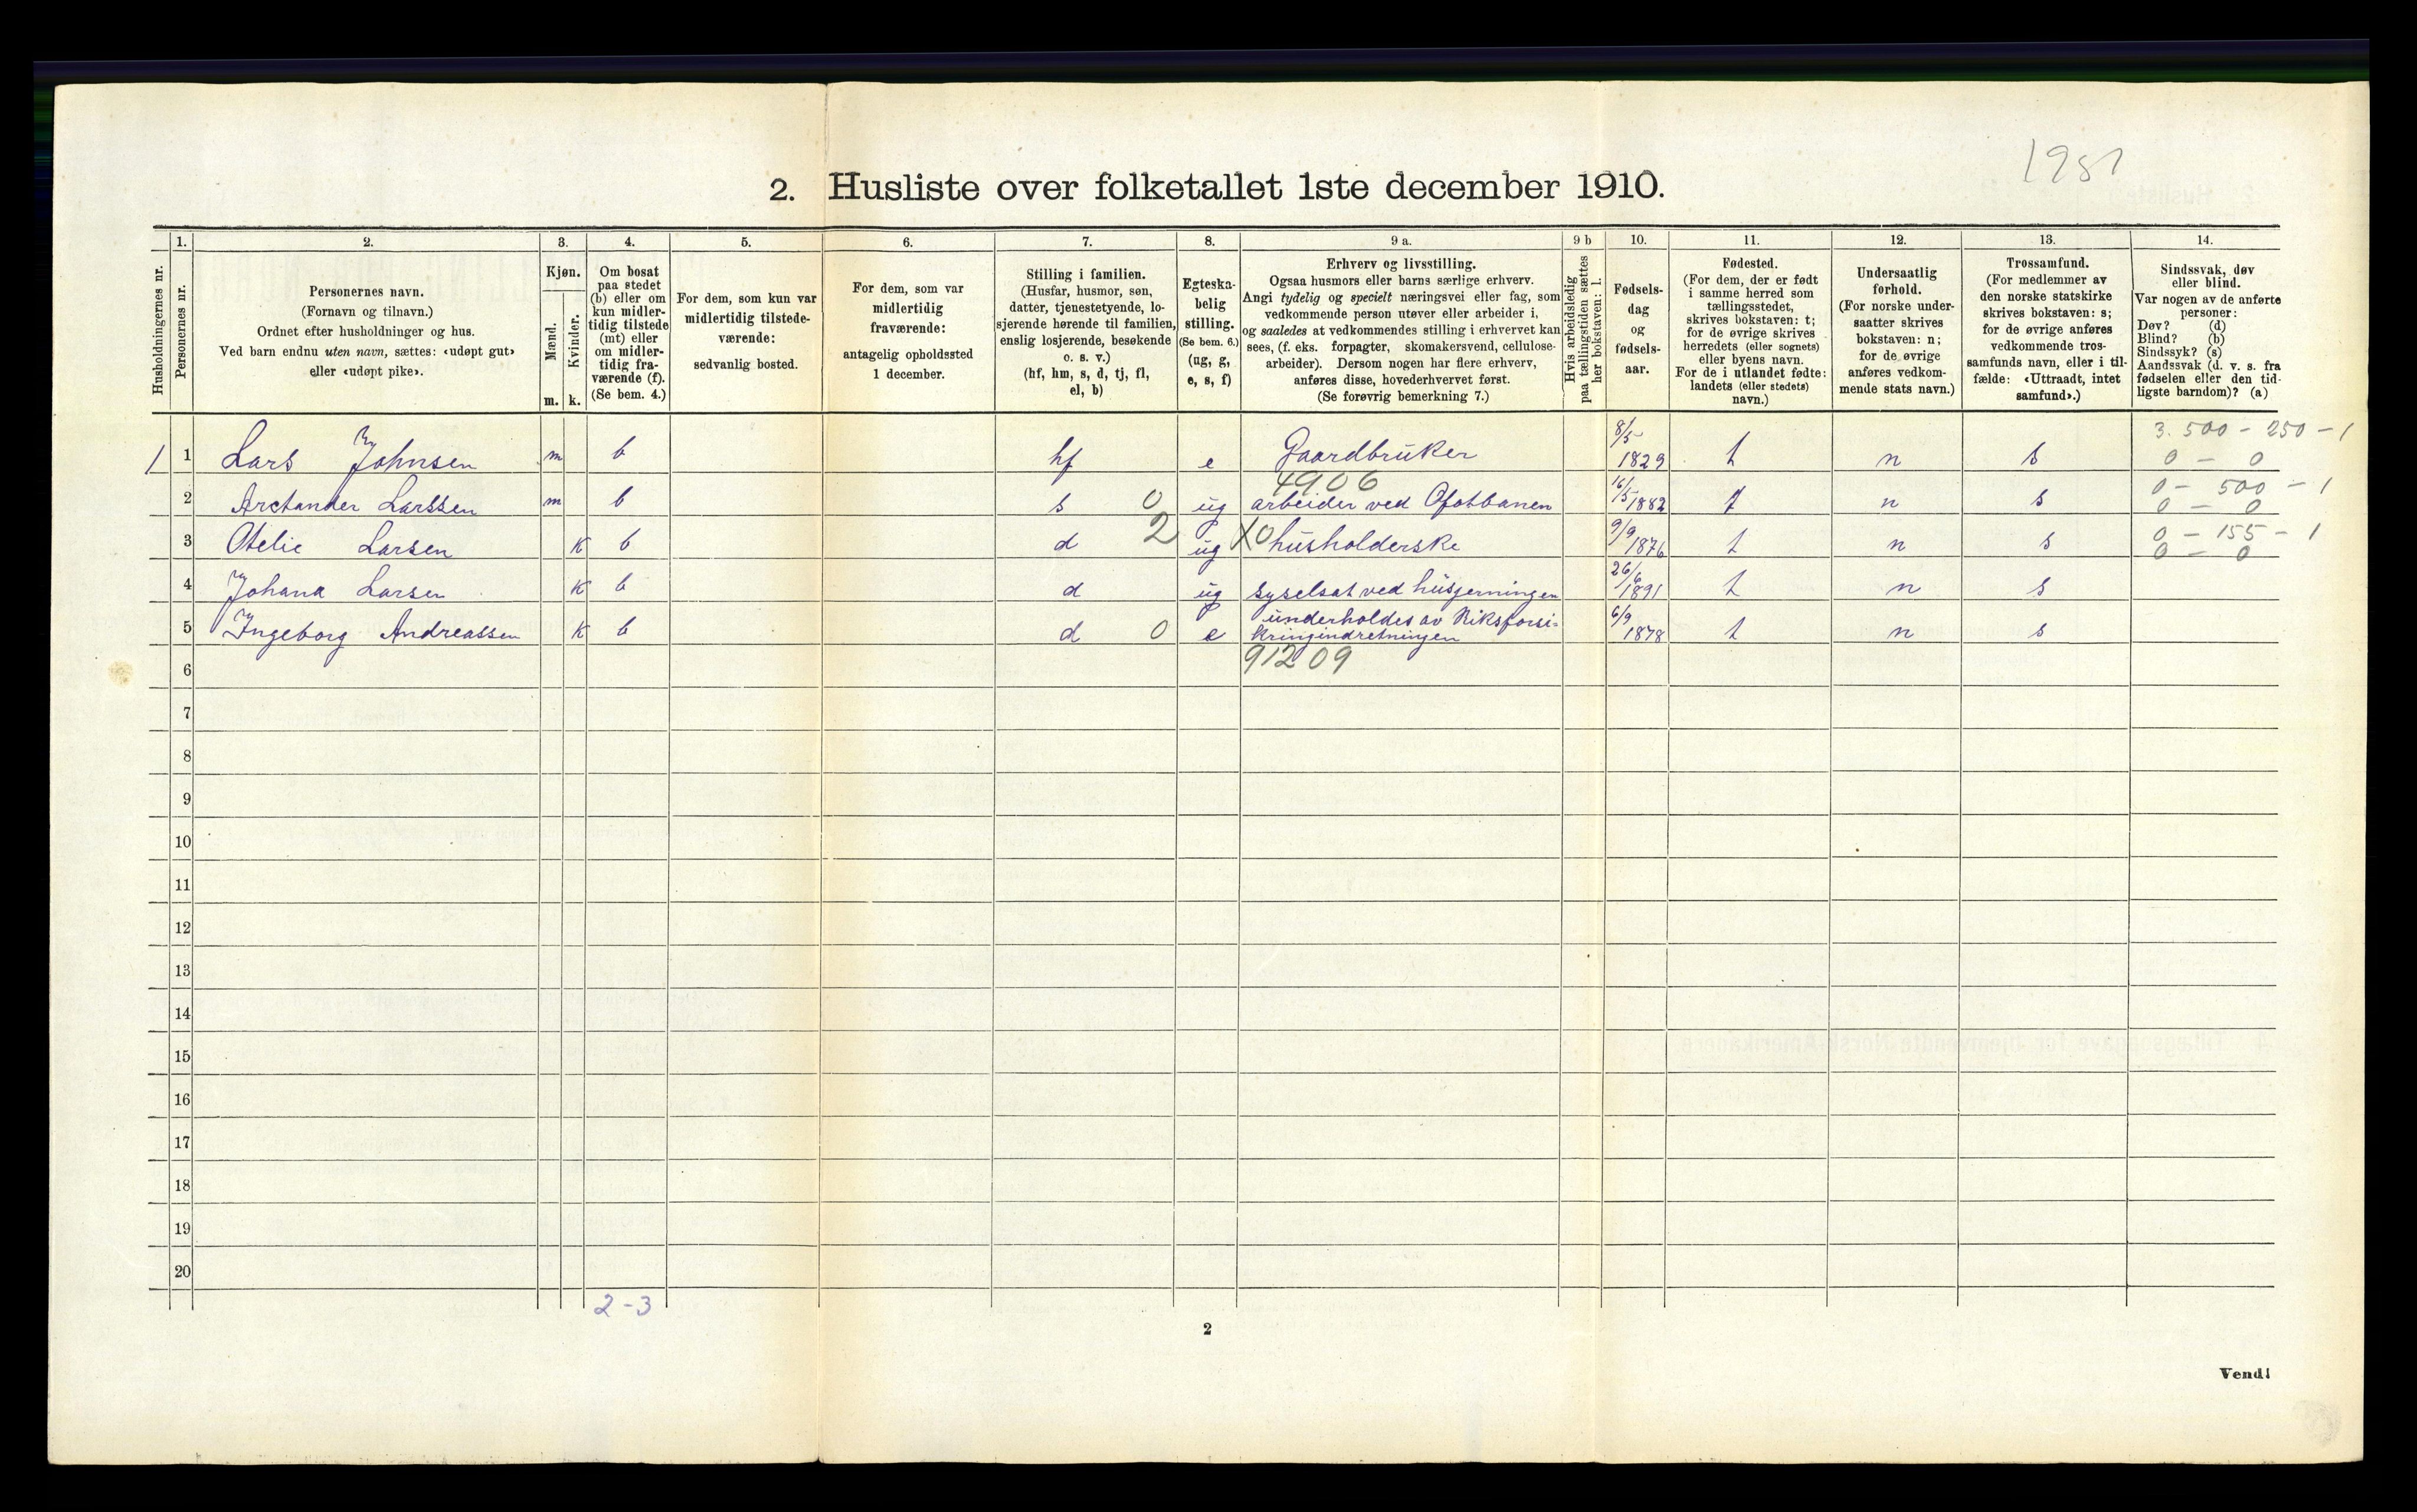 1981
2. Husliste over folketallet 1ste december 1910.
Husholdningernes nr.
1.
Personernes nr.
2.
Personernes navn.
(Fornavn og tilnavn.)
Ordnet efter husholdninger og hus.
Ved barn endnu uten navn, sættes: «udøpt gut»
eller «udøpt pike».
3.
Kjøn.
Mænd.
Kvinder.
m. k.
4.
Om bosat
paa stedet
(b) eller om
kun midler-
tidig tilstede
(mt) eller
om midler-
tidig fra-
værende (f).
(Se bem. 4.)
5.
For dem, som kun var
midlertidig tilstede-
værende:
sedvanlig bosted.
6.
For dem, som var
midlertidig
fraværende:
antagelig opholdssted
1 december.
7.
Stilling i familien.
(Husfar, husmor, søn,
datter, tjenestetyende, lo-
sjerende hørende til familien,
enslig losjerende, besøkende
o. s. v.)
(hf, hm, s, d, tj, fl,
el, b)
8.
Egteska-
belig
stilling.
(Se bem. 6.)
(ug, g,
e, s, f)
9 a.
Erhverv og livsstilling.
Ogsaa husmors eller barns særlige erhverv.
Angi tydelig og specielt næringsvei eller fag, som
vedkommende person utøver eller arbeider i,
og saaledes at vedkommendes stilling i erhvervet kan
sees, (f. eks. forpagter, skomakersvend, cellulose-
arbeider). Dersom nogen har flere erhverv,
anføres disse, hovederhvervet først.
(Se forøvrig bemerkning 7.)
9 b
Hvis arbeidsledig
paa tællingstiden sættes
her bokstaven: l.
10.
Fødsels-
dag
og
fødsels-
aar.
11.
Fødested.
(For dem, der er født
i samme herred som
tællingsstedet,
skrives bokstaven: t;
for de øvrige skrives
herredets (eller sognets)
eller byens navn.
For de i utlandet fødte:
landets (eller stedets)
navn.)
12.
Undersaatlig
forhold.
(For norske under-
saatter skrives
bokstaven: n;
for de øvrige
anføres vedkom-
mende stats navn.)
13.
Trossamfund.
(For medlemmer av
den norske statskirke
skrives bokstaven: s;
for de øvrige anføres
vedkommende tros-
samfunds navn, eller i til-
fælde: «Uttraadt, intet
samfund».)
14.
Sindssvak, døv
eller blind.
Var nogen av de anførte
personer:
Døv? (d)
Blind? (b)
Sindssyk? (s)
Aandssvak (d. v. s. fra
fødselen eller den tid-
ligste barndom)? (a)
1 1 Lars Johnsen m b hf e Gaardbruker 8/5 1829 t n s 3.500 - 250 - 1
0 - 0
4906
2 Arctander Larssen m b s 0 ug arbeider ved Ofotbanen 16/5 1882 t n s 0 - 500 - 1
0 - 0
3 Otelie Larsen k b d 2 ug X0 husholderske 9/9 1876 t n s 0 - 155 - 1
0 - 0
4 Johana Larsen k b d ug syselsat ved husgerningen 26/6 1891 t n s
5 Ingeborg Andreassen k b d 0 e underholdes av Riksforsi-
kringindretningen 6/9 1878 t n s
91209
6
7
8
9
10
11
12
13
14
15
16
17
18
19
20
2 - 3
2
Vend!